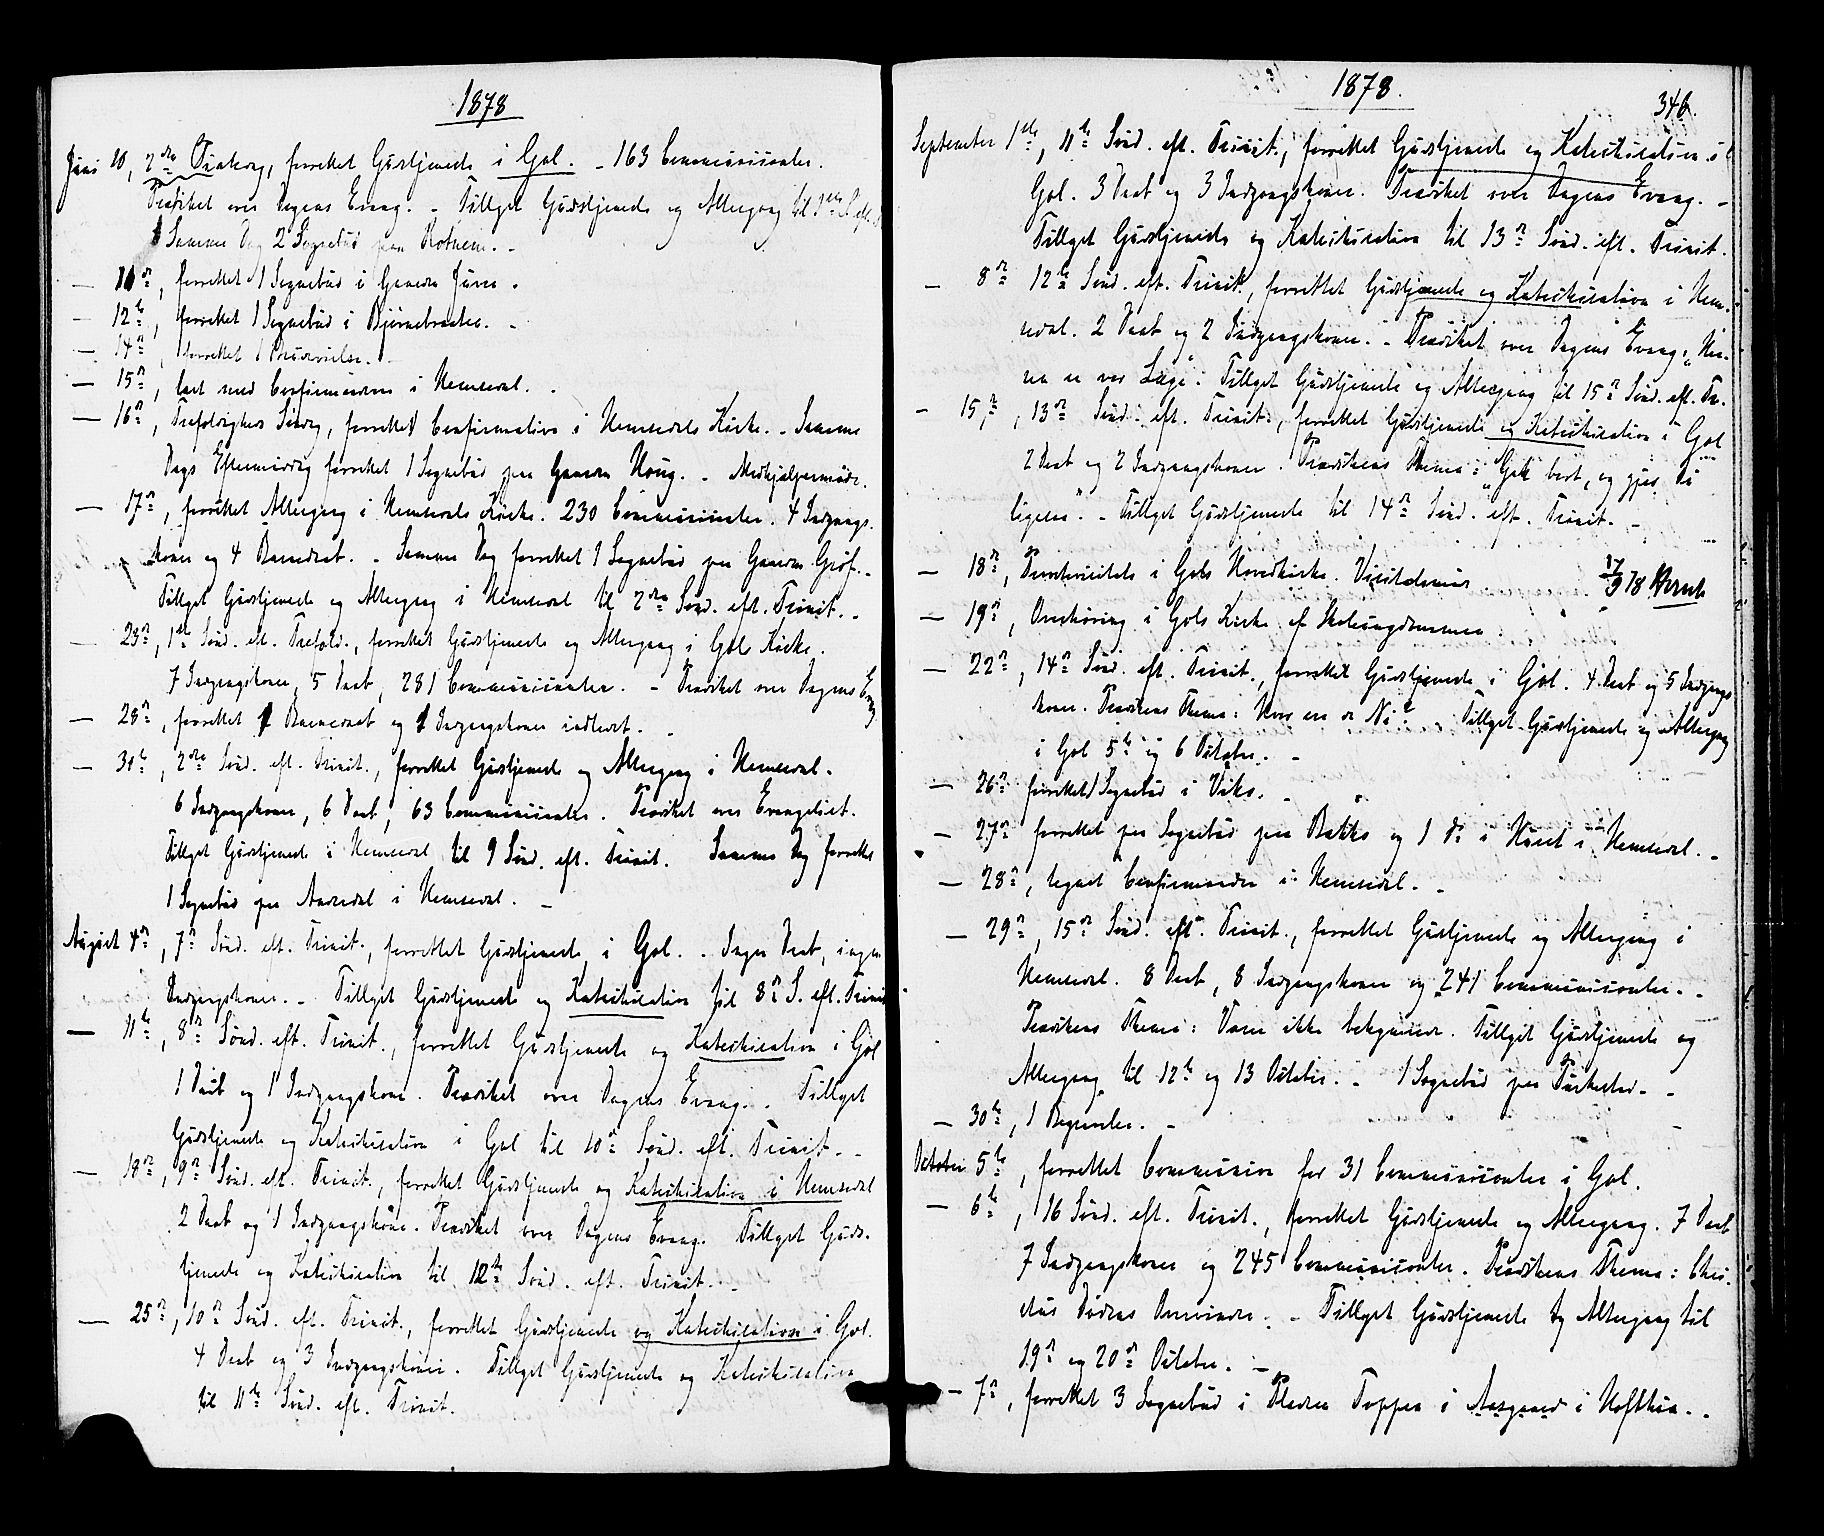 1878
Juni 10, 2den Pintsdag, forrettet Gudstjeneste i Gol. - 163 Communicanter.
Prædiket over Dagens Evang. - Tillyst Gudstjeneste og Altergang til 1ste S. eft.
Samme Dag 2 Sognebud paa Rotnem. -
- 10de, forrettet 1 Sognebud i
- 12te, forrettet 1 Sognebud i Bjørnebraaten. -
- 14de, forrettet 1 Brudevielse. -
- 15de, læst med Confirmanderne i Hemsedal. -
- 16de, Trefoldigheds Søndag, forrettet Confirmation i Hemsedals Kirke. - Samme
Dags Eftermiddag forrettet 1 Sognebud paa Haug. - Medhjælpermøde.
- 17de, forrettet Altergang i Hemsedals Kirke. 230 Communicanter. 4 Indgangs-
koner og 4 Barnedaab. - Samme Dag forrettet 1 Sognebud paa Grøf. -
Tillyst Gudstjeneste og Altergang i Hemsedal til 2den Sønd. eft. Trinit. -
- 23de, 1ste Sønd. eft. Trefold., forrettet Gudstjeneste og Altergang i Gols Kirke.
7 Indgangskoner, 5 Daab, 281 Communicanter. - Prædiket over Dagens Evang
- 28de, forrettet 1 Barnedaab og 1 Indgangskone indledet. -
- 30te, 2den Sønd. eft. Trinit., forrettet Gudstjeneste og Altergang i Hemsedal.
6 Indgangskoner, 6 Daab, 63 Communicanter. Prædiket over Evangeliet.
Tillyst Gudstjeneste i Hemsedal til 9 Sønd. eft. Trinit. Samme Dag forrettet
1 Sognebud paa i Hemsedal. -
August 4de, 7de Sønd. eft. Trinit., forrettet Gudstjeneste i Gol. - Ingen Daab, ingen
Indgangskoner. - Tillyst Gudstjeneste og Katechisation til 8de S. eft. Trinit
- 11te, 8de Sønd. eft. Trinit., forrettet Gudstjeneste og Katechisation i Gol
1 Daab og 1 Indgangskone. Prædiket over Dagens Evang. - Tillyst
Gudstjeneste og Katechisation i Gol til 10de Sønd. eft. Trinit. -
- 18de, 9de Sønd. eft. Trinit., forrettet Gudstjeneste og Katechisation i Hemsedal
2 Daab og 1 Indgangskone. Prædiket over Dagens Evang. Tillyst Guds-
tjeneste og Katechisation til 12te Sønd. eft. Trinit. -
- 25de, 10de Sønd. eft. Trinit., forrettet Gudstjeneste og Katechisation i Gol.
4 Daab og 3 Indgangskoner. Tillyst Gudstjeneste og Katechisation
til 11te Sønd. eft. Trinit.
1878.
346.
September 1ste, 11te Sønd. eft. Trinit., forrettet Gudstjeneste og Katechisation i
Gol. 3 Daab og 3 Indgangskoner. Prædiket over Dagens Evang. -
Tillyst Gudstjeneste og Katechisation til 13de Sønd. eft. Trinit.
- 8de 12te Sønd. eft. Trinit., forrettet Gudstjeneste og Katechisation i Hem-
sedal. 2 Daab og 2 Indgangskoner. - Prædiket over Dagens Evang: "Her-
ren er vor Læge". Tillyst Gudstjeneste og Altergang til 15de Sønd. eft. Tr.
- 15de, 13de Sønd. eft. Trinit., forrettet Gudstjeneste og Katechisation i Gol
2 Daab og 2 Indgangskoner. Prædikens Thema: "Gak bort, og gjør Du
ligesaa". - Tillyst Gudstjeneste til 14de Sønd. eft. Trinit. -
- 18de, Provstevisitats i Gols Hovedkirke. 17/9 78
- 19de, Overhøring i Gols Kirke af Skoleungdommen.
- 22de, 14de Sønd. eft. Trinit., forrettet Gudstjeneste i Gol. 4 Daab og 5 Indgangs
koner. Prædikens Thema: Hvor ere de Ni? - Tillyst Gudstjeneste og Altergang
i Gol 5te og 6 October. -
- 26de forrettet 1 Sognebud i Viko. -
- 27de forrettet paa Sognebud paa Bakko og 1 Do i i Hemsedal. -
- 28de, tegnet Confirmander i Hemsedal. -
- 29de, 15de Sønd. eft. Trinit., forrettet Gudstjeneste og Altergang i
Hemsedal. 8 Daab, 8 Indgangskoner og 241 Communicanter. -
Prædikens Thema: Vær ikke bekymret. Tillyst Gudstjeneste og
Altergang til 12te og 13 October. - 1 Sognebud paa -
- 30te, 1 Begravelse. -
October 5te, forrettet Communion for 31 Communicanter i Gol.
- 6te, 16 Sønd. eft. Trinit., forrettet Gudstjeneste og Altergang. 7 Daab
7 Indgangskoner og 245 Communicanter. Prædikens Thema: Chri-
stus Dødens Overvinder. - Tillyst Gudstjeneste og Altergang til
19de og 20de October. -
- 7de, forrettet 3 Sognebud i i Aasgaard i Hofthun. -